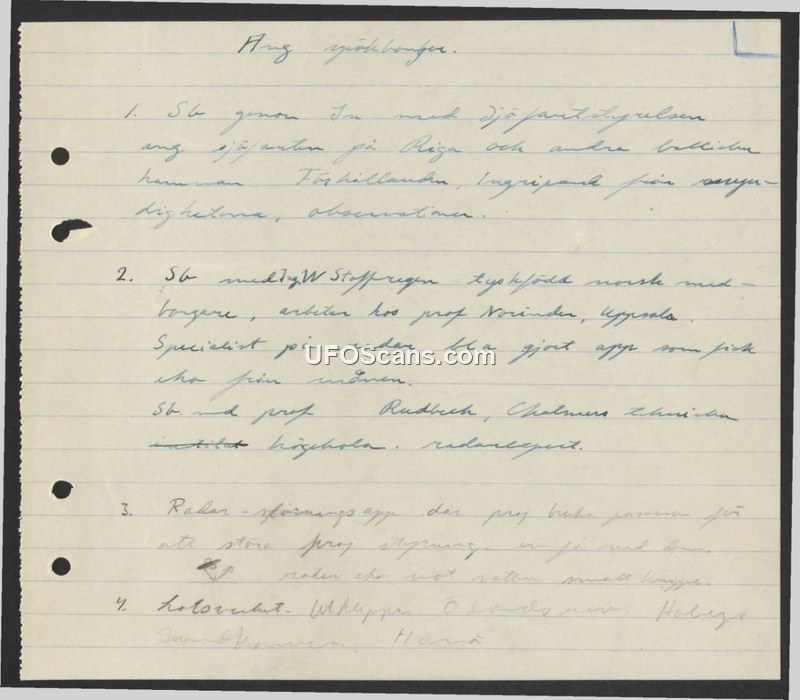 Ang spökbomber.
1. Sb genom In med Sjöfartsstyrelsen
ang sjöfarten på Riga och andra baltiska
hamnar. Förhållanden, ingripande från myn-
digheterna, observationer.
2. Sb med Ing W Stoffregen tyskfödd norsk med-
borgare, arbetar hos prof Norinder, Uppsala.
Specialist på radar bl a gjort app som fick
eko från månen.
Sb. med prof Rudbeck, Chalmers tekniska
institut högskola. radarexpert.
3. Radar-störningsapp där proj för
att störa proj styrning. med
radar eko mot vatten smalt
4. Lotsverket. Utklippan. Ölands Hoburg
Hanö
UFOScans.com